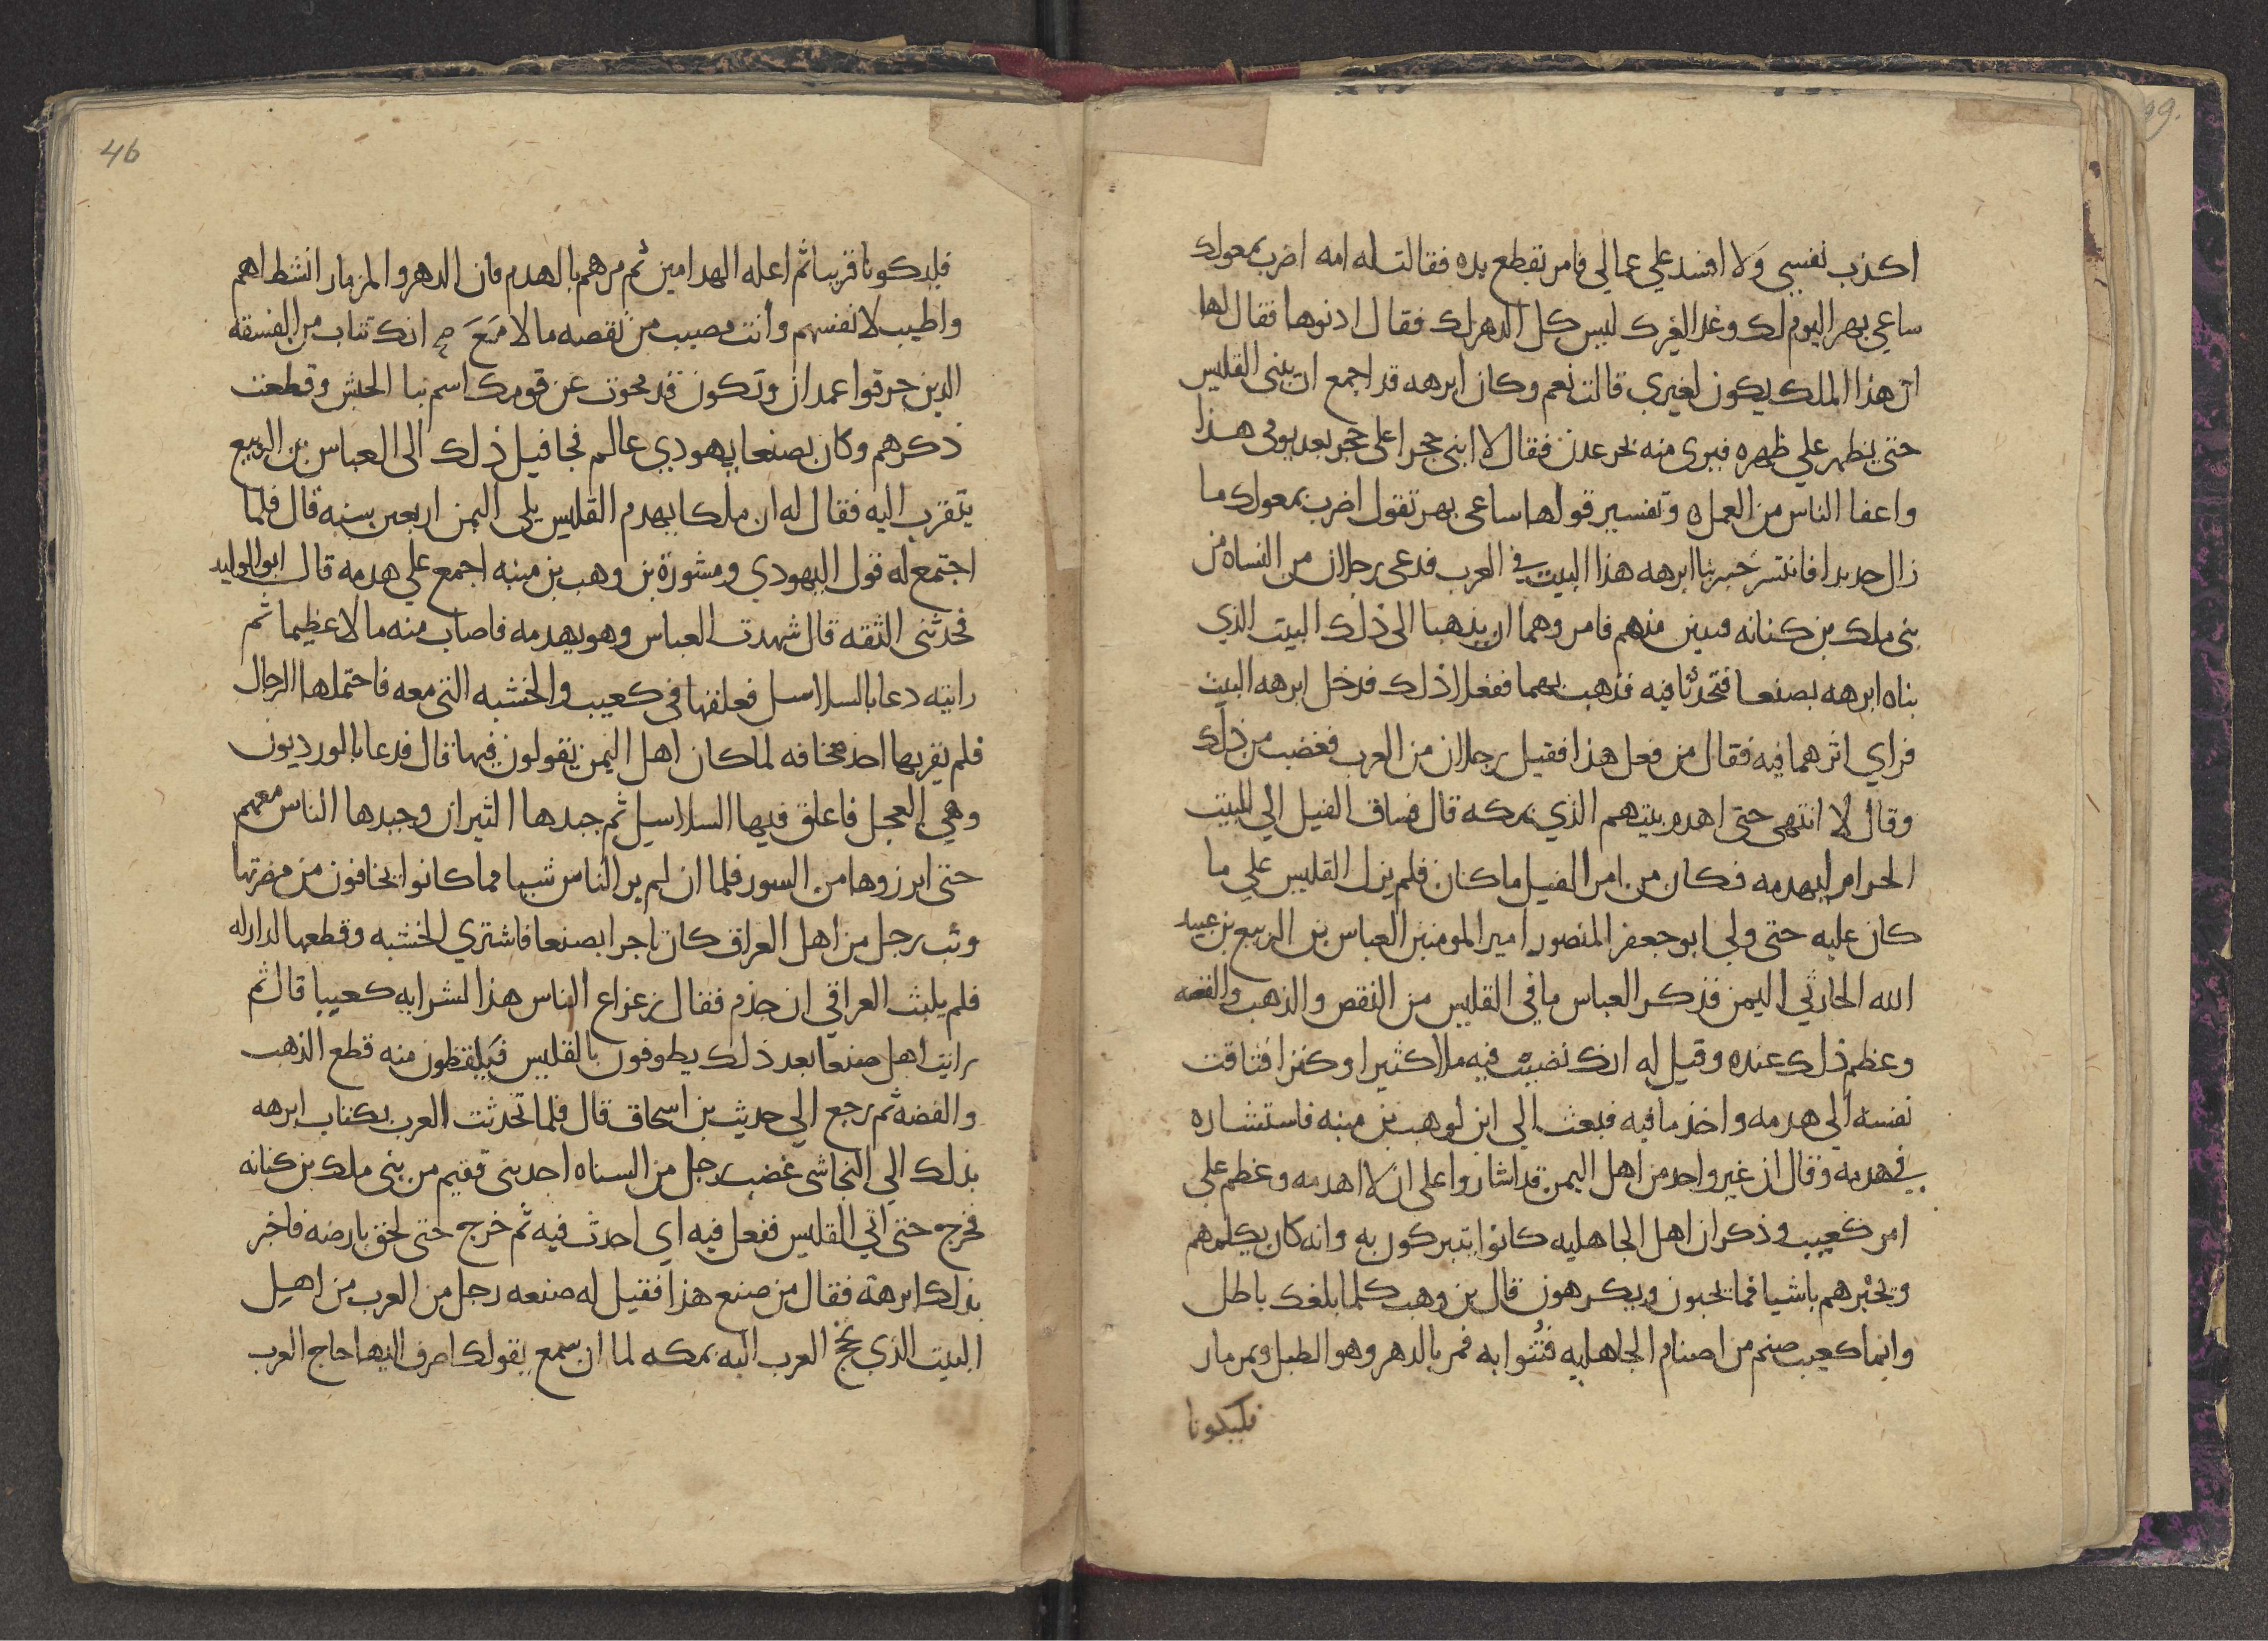 اكذب نفسي ولا افسد علي عمالي فامر بقطع يده فقالت له امه اضرب بمعولك
ساعي بهر اليوم لك وغدا لغيرك ليس كل الدهر لك فقال ادنوها فقال لها
ان هذا الملك يكون لغيري قالت نعم وكان ابرهه قد اجمع ان يبني القليس
حتى يظهر علي ظهره فيرى منه بحر عدن فقال لا ابني حجرا على حجر بعد يومي هذا
واعفا الناس من العمل ه وتفسير قولها ساعى بهر تقول اضرب بمعولك ما
زال حديدا فانتشر خبر بنا ابرهه هذا البيت في العرب فدعى رجلان من النساه من
بني ملك بن كنانه فتيين منهم فامروهما ان يذهبا الى ذلك البيت الذي
بناه ابرهه بصنعا فتحدثا فيه فذهب بهما ففعلا ذلك فدخل ابرهه البيت
فراي اثرهما فيه فقال من فعل هذا فقيل رجلان من العرب فغضب من ذلك
وقال لا انتهى حتى اهدم بيتهم الذي بمكه قال فساق الفيل الي البيت
الحرام ليهدمه فكان من امر الفيل ما كان فلم يزل القليس علي ما
كان عليه حتى ولي ابو جعفر المنصور امير المومنين العباس بن الربيع بن عبيد
الله الحارثي اليمن فذكر العباس ما في القليس من النقص والذهب والفضه
وعظم ذلك عنده وقيل له انك تصيب فيه مالا كثيرا وكنزا فتاقت
نفسه الي هدمه واخذ ما فيه فبعث الي ابن لوهب بن منبه فاستشاره
في هدمه وقال ان غير واحد من اهل اليمن قد اشاروا على ان لا اهدمه وعظم علي
امر كعيب وذكر ان اهل الجاهليه كانوا يتبركون به وانه كان يكلمهم
ويخبرهم باشيا فما يحبون ويكرهون قال بن وهب كلما بلغك باطل
وانما كعيب صنم من اصنام الجاهليه فتنوا به فمر بالدهر وهو الطبل وبمزمار
فليكونا
46
فليكونا قريبا ثم اعله الهدامين ثم مرهم بالهدم فان الدهر والمزمار انشط لهم
واطيب لانفسهم وأنت مصيب من نقصه مالا مع انك تثاب من الفسقه
الذين حرقوا غمدان وتكون قد محوت عن قومك اسم بنا الحبش وقطعت
ذكرهم وكان بصنعا يهودي عالم فجا قبل ذلك الى العباس بن الربيع
يتقرب اليه فقال له ان ملكا يهدم القليس يلي اليمن اربعين سنه قال فلما
اجتمع له قول اليهودي ومشورة بن وهب بن منبه اجمع علي هدمه قال ابو الوليد
فحدثني الثقه قال شهدت العباس وهو يهدمه فاصاب منه مالا عظيما ثم
رايته دعا بالسلاسل فعلقها في كعيب والخشبه التي معه فاحتملها الرجال
فلم يقربها احد مخافه لما كان اهل اليمن يقولون فيها قال فدعا بالورديون
وهي العجل فاعلق فيها السلاسل ثم جبدها الثيران وجبدها الناس معهم
حتى ابرزوها من السور فلما ان لم ير الناس شيا مما كانوا يخافون من مضرتها
وثب رجل من اهل العراق كان تاجرا بصنعا فاشتري الخشبه وقطعها لدار له
فلم يلبث العراقي ان جذم فقال رعاع الناس هذا لشرايه كعيبا قال ثم
رايت اهل صنعا بعد ذلك يطوفون بالقليس فيلقطون منه قطع الذهب
والفضه ثم رجع الي حديث بن اسحاق قال فلما تحدثت العرب بكتاب ابرهه
بذلك الي النجاشي غضب رجل من النساه احد بني فقيم من بني ملك بن كنانه
فخرج حتى اتي القليس ففعل فيه اي احدث فيه ثم خرج حتى لحق بارضه فاخبر
بذلك ابرهة فقال من صنع هذا فقيل له صنعه رجل من العرب من اهل
البيت الذي تحج العرب اليه بمكه لما ان سمع بقولك اصرف اليها حاج العرب